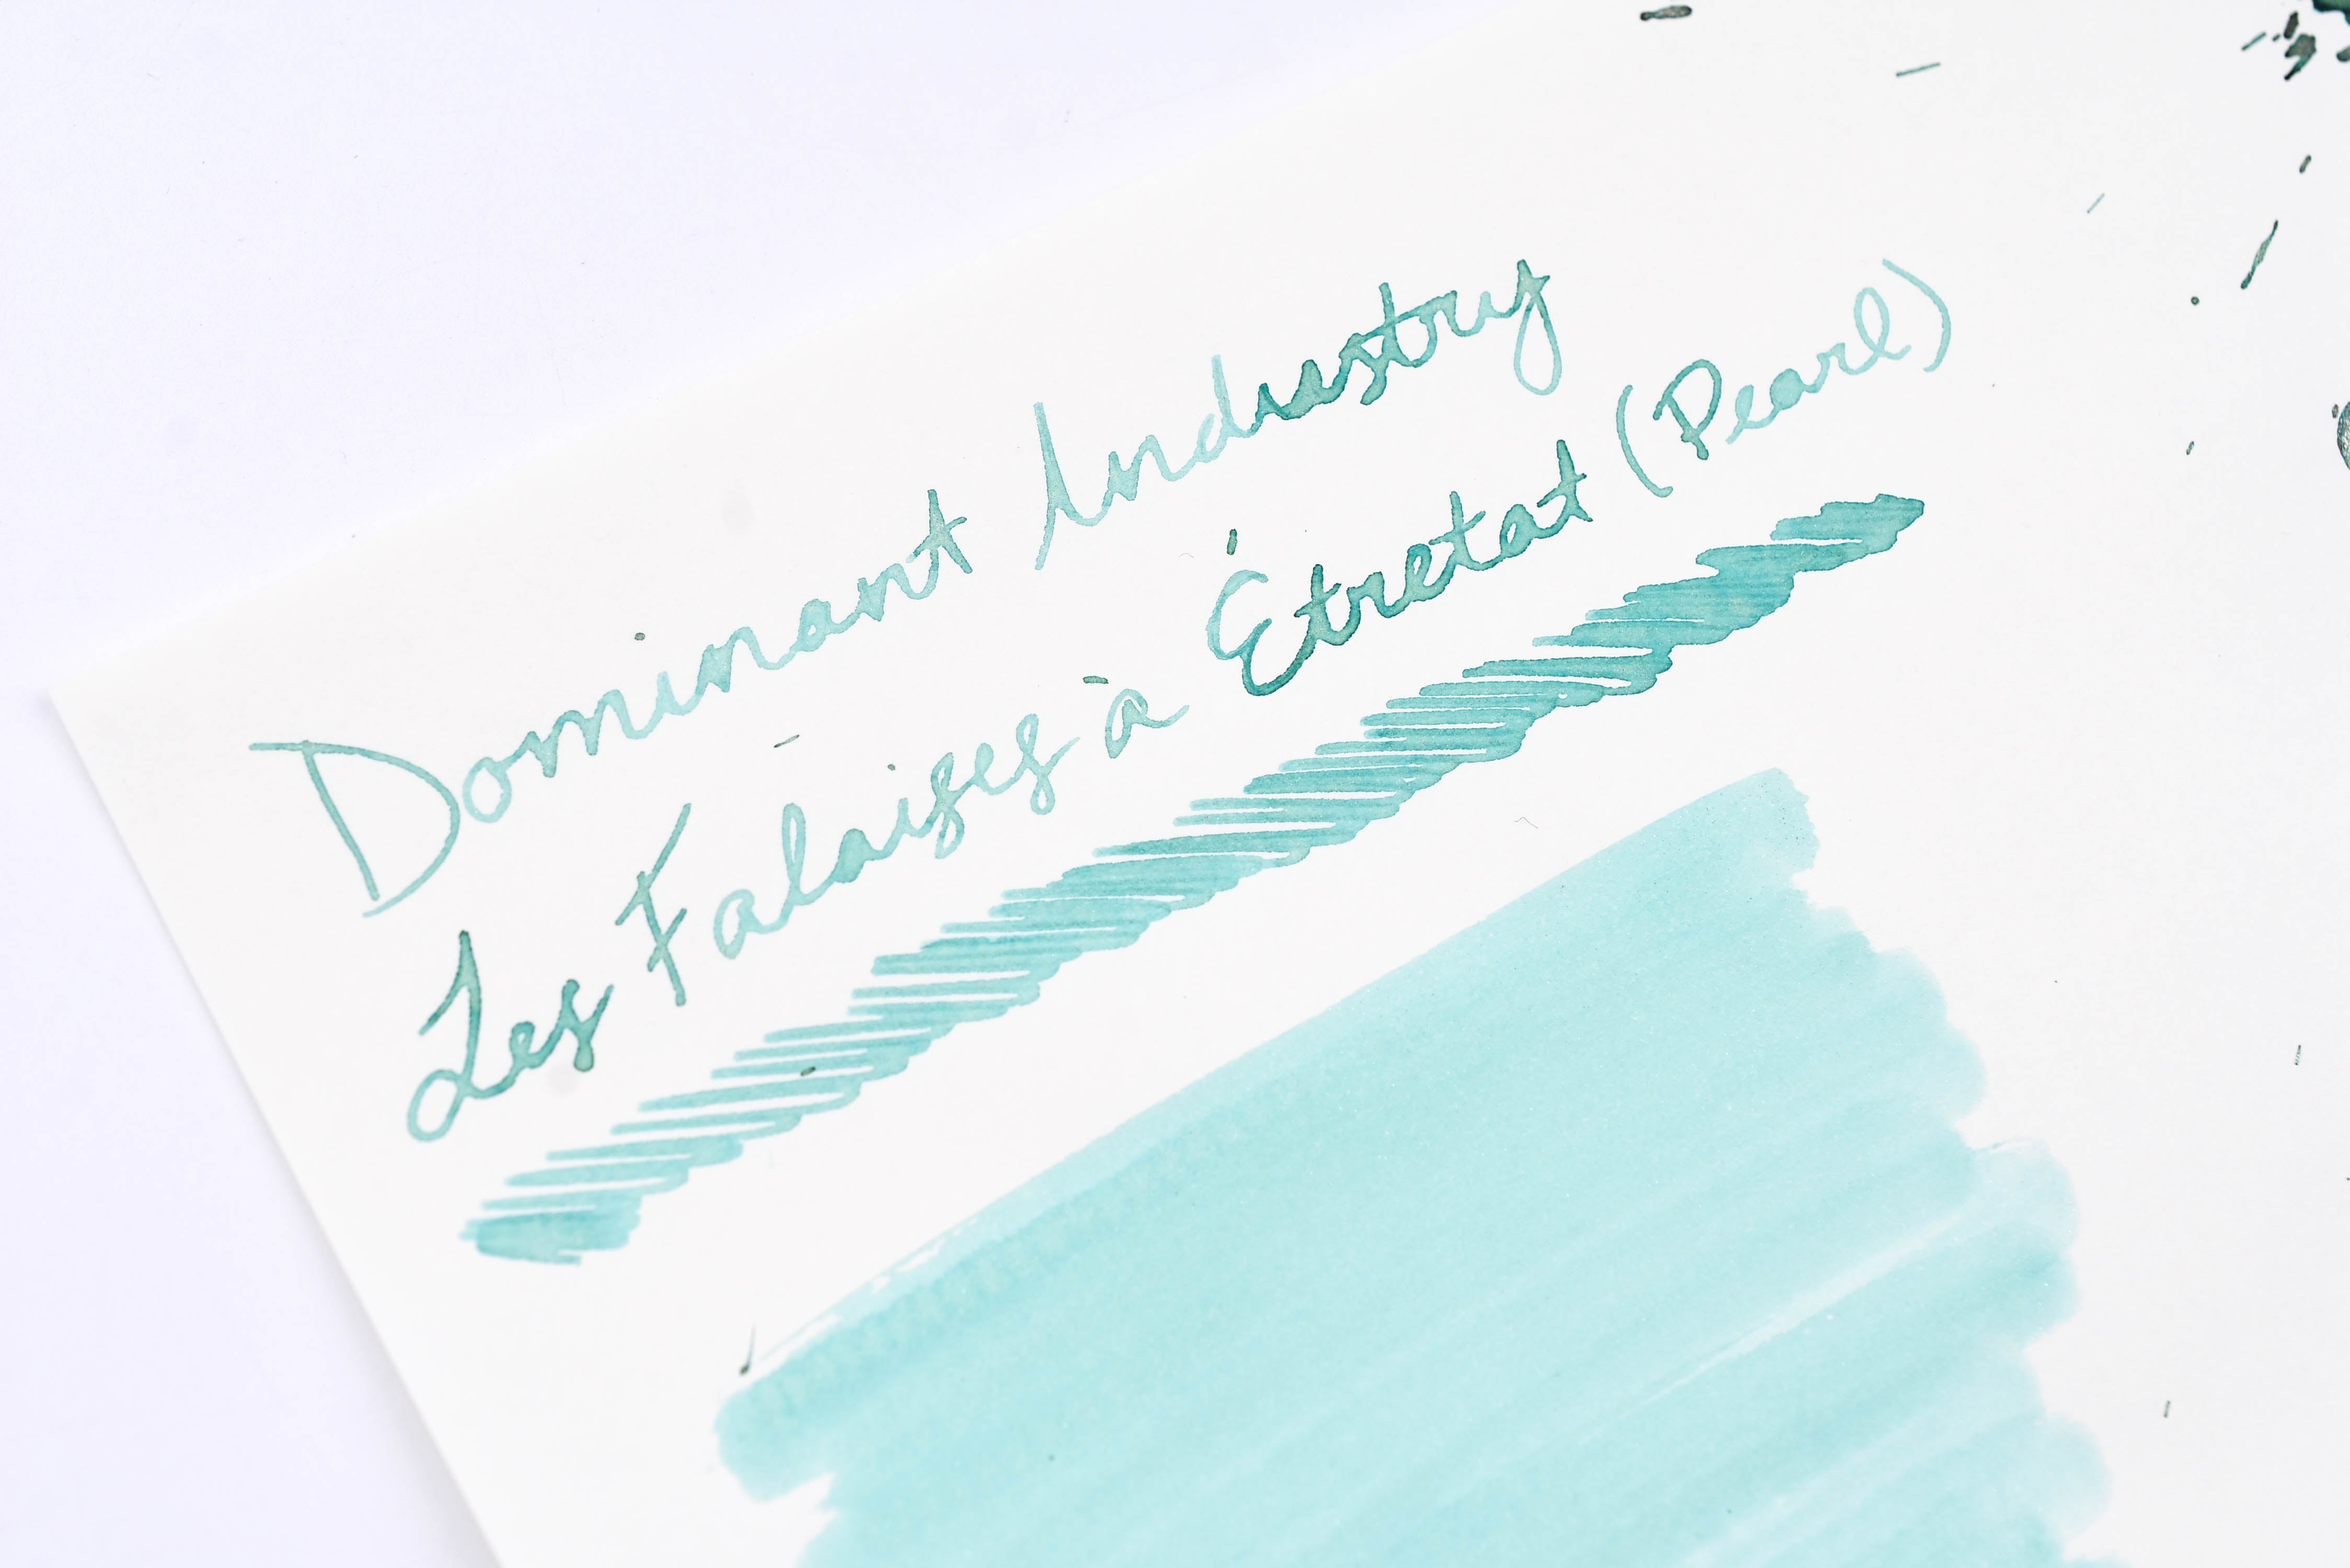 Dominant Industry
Les Falaises à Étretat (Pearl)